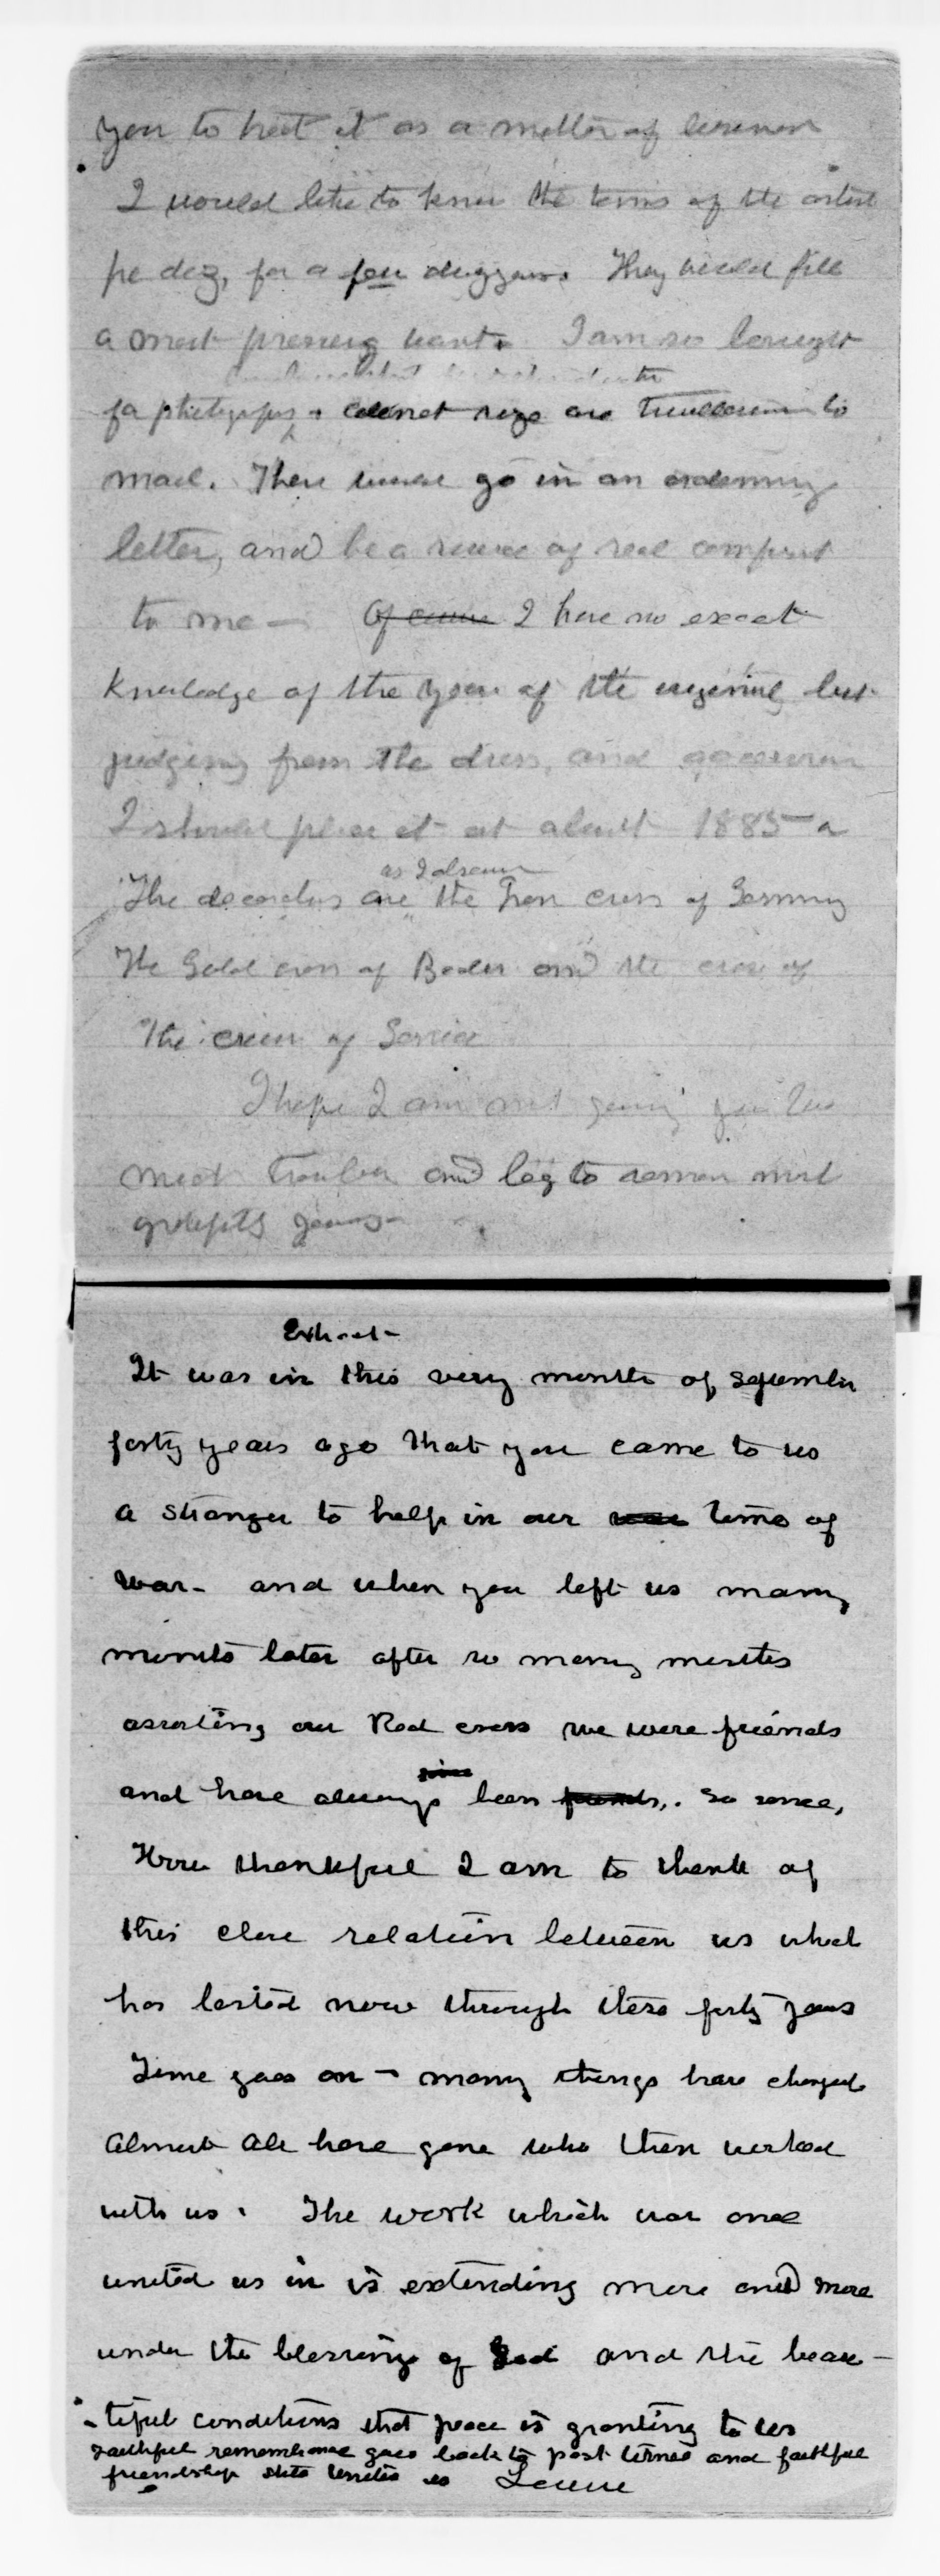 you to treat it as a matter of business
I would like to know the terms of the artist
per doz, for a few duzzans. They would fill
a most pressing want. I am so
for photographs. cabinet size are troublesome to
mail. These would go in an ordinary
letter, and be a source of real comfort
to me — Of course I have no exact
knowledge of the year of the original but
judging from the dress, and
I should place it at about 1885
as I discern
The decorations are the Iron cross of Germany
The Gold cross of Baden and the cross of
the of Servia
I hope I am not giving you too
much trouble and beg to remain most
gratefully yours
Extract
It was in this very month of September
forty years ago that you came to us
a stranger to help in our war time of
war - and when you left us many
months later after so many months
assisting our Red cross we were friends
since
and have always been friends,. so since,
How thankful I am to think of
this close relation between us which
has lasted now through these forty years
Time goes on - many things have changed
Almost all have gone who then worked
with us. The work which war once
united us in is extending more and more
under the blessing of God and the beau-
-tiful conditions that peace is granting to us
Faithful remembrance goes back to past times and faithful
friendship still unites us Louise